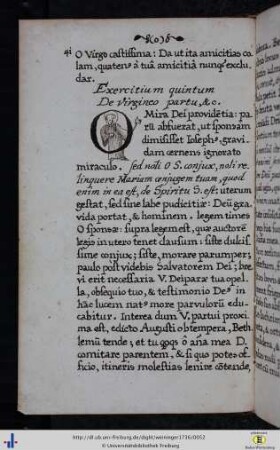 )o(
41 O Virgo castissima: Da ut ita amicitias co
lam, quatenꝰ à tuâ amicitiâ nunqꝫ exclu
dar.
Exercitium quintum
De Virgineo partu, &c.
O Mira Dei providētia: pa-
rū abfuerat, ut sponsam
dimisisset Iosephꝰ, gravi-
dam cernens ignorato
miraculo. sed noli O S. conjux, noli re-
linquere Mariam conjugem tuam, quod
enim in ea est, de Spiritu S. est: uterum
gestat, sed sine labe pudicitiæ: Deū gra-
vida portat, & hominem. legem times
O sponse: supra legem est, quæ auctorē
legis in utero tenet clausum: siste dulcis-
sime conjux; siste, morare parumper;
paulo post videbis Salvatorem Dei; bre-
vi erit necessaria V. Deiparæ tua opel-
la, obsequio tuo, & testimonio Deꝰ in
hāc lucem natꝰ more parvulorū edu-
cabitur. Interea dum V. partui proxi-
ma est, edicto Augusti obtempera, Beth-
lemū tende; et tu qoqꝫ ô aña mea D.
comitare parentem, & si quo potes of-
ficio, itineris molestias lenire cōtende,
http://dl.ub.uni-freiburg.de/diglit/weininger1736/0052
© Universitätsbibliothek Freiburg